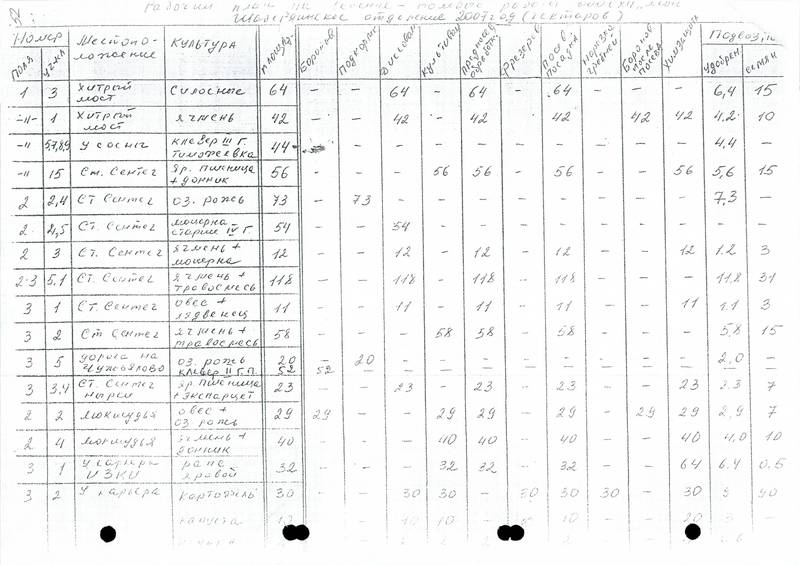 Рабочий план на весенне-полевые работы
Шолегдинское отделение 2007 год (гектаров)
Номер Местоположение Культура площадь Боронов Подкорм Дисков культивац Предпосев обработка фрезеров Посев, посадка нарезка гребней Боронов после посева Химзащита Подвоз, т
поля уч-ка удобрен. семян
1 3 Хитрый мост Силосные 64 – – 64 – 64 – 64 – – – 6,4 15
-"- 1 Хитрый мост ячмень 42 – – 42 – 42 – 42 – 42 42 4.2 10
-" 5,7,8,9 У сосны клевер III г. тимофеевка 44 – – – – – – – – – 4,4 –
-" 15 Ст. Сентег яр. пшеница + донник 56 – – – 56 56 – 56 – – 56 5,6 15
2 2,4 Ст Сентег оз. рожь 73 – 73 – – – – – – – – 7,3 –
2 4,5 Ст. Сентег люцерна старше IV г. 54 – – 54 – – – – – – – – –
2 3 Ст. Сентег ячмень + люцерна 12 – – 12 – 12 – 12 – – 12 1.2 3
2-3 5,1 Ст. Сентег ячмень + травосмесь 118 – – 118 – 118 – 118 – – – 11.8 31
3 1 Ст. Сентег овес + лядвенец 11 – – 11 – 11 – 11 – – 11 1.1 3
3 2 Ст Сентег ячмень + травосмесь 58 – – – 58 58 – 58 – – – 5.8 15
3 5 дорога на Чужьялово оз. рожь 20 – 20 – – – – – – – – 2,0 –
клевер II г.п. 52 52 – – – – – – – – – – –
3 3,4 Ст. Сентег нырси яр пшеница + эспарцет 23 – – 23 – 23 – 23 – – 23 2.3 7
2 2 мокшудья овес + оз рожь 29 29 – – 29 29 – 29 – 29 29 2,9 7
2 4 мокшудья ячмень + донник 40 – – – 40 40 – 40 – – 40 4,0 10
3 1 У рапс яровой 32 – – – 32 32 – 32 – – 64 6.4 0.5
3 2 У карьера картофель 30 – – 30 30 – 30 30 30 – 30 9 90
капуста 10 – – 10 10 – – 10 – – 20 3 –